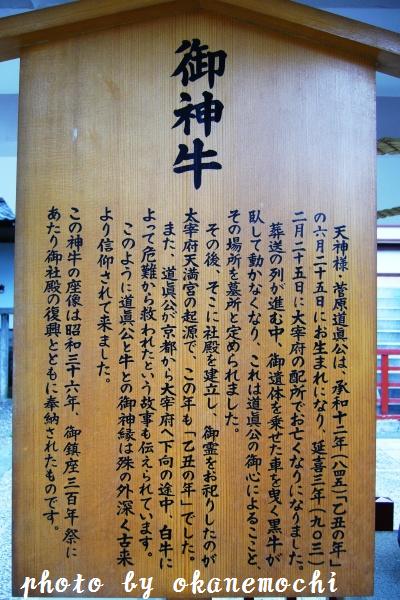 御神牛
天神様・菅原道眞公は、承和十二年（八四五）「乙丑の年」
の六月二十五日にお生まれになり、延喜三年（九〇三）
二月二十五日に大宰府の配所でお亡くなりになりました。
葬送の列が進む中、御遺体を乗せた車を曳く黒牛が
臥して動かなくなり、これは道眞公の御心によることと、
その場所を墓所と定められました。
その後、そこに社殿を建立し、御霊をお祀りしたのが
太宰府天満宮の起源で、この年も「乙丑の年」でした。
また、道眞公が京都から大宰府へ下向の途中　白牛に
よって危難から救われたという故事も伝えられています。
このように道眞公と牛との御神縁は殊の外深く古来
より信仰されて来ました。
この神牛の座像は昭和三十六年、御鎮座三百年祭に
あたり御社殿の復興とともに奉納されたものです。
photo by okanemochi